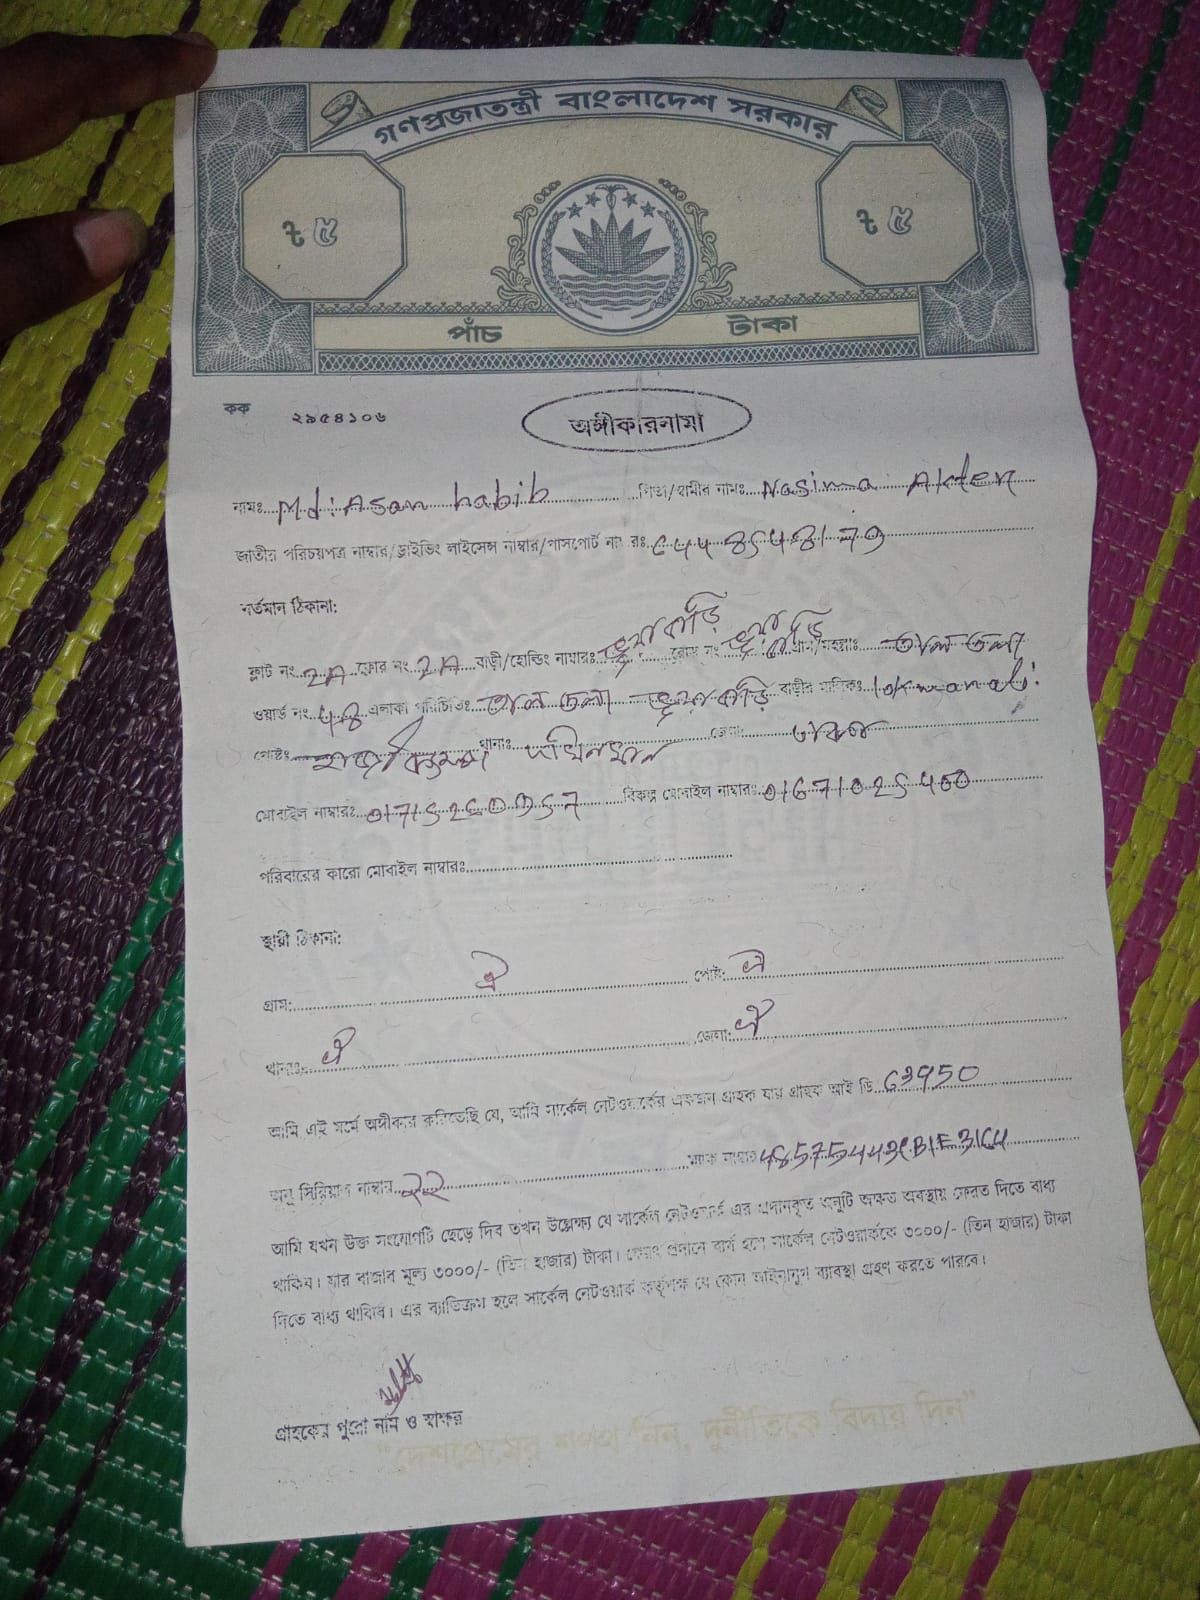 গণপ্রজাতন্ত্রী বাংলাদেশ সরকার
৳ ৫ ৳ ৫
পাঁচ টাকা
কক ২৯৫৪১০৬ অঙ্গীকারনামা
নামঃ Md: Asan habib পিতা/স্বামীর নামঃ Nasima Akter
জাতীয় পরিচয়পত্র নাম্বার/ড্রাইভিং লাইসেন্স নাম্বার/পাসপোর্ট নাম্বারঃ
বর্তমান ঠিকানা:
ফ্লাট নং 2A ফ্লোর নং 2A বাড়ী/হোল্ডিং নাম্বারঃ রোড নং গ্রাম/মহল্লাঃ তাল তলা
ওয়ার্ড নং 48 এলাকা পরিচিতিঃ তাল তলা বাড়ীর মালিকঃ lokman ali
পোষ্টঃ থানাঃ দক্ষিনখান জেলাঃ ঢাকা
মোবাইল নাম্বারঃ বিকল্প মোবাইল নাম্বারঃ 01671025400
পরিবারের কারো মোবাইল নাম্বারঃ
স্থায়ী ঠিকানা:
গ্রাম: ঐ পোষ্ট: ঐ
থানাঃ ঐ জেলা: ঐ
আমি এই মর্মে অঙ্গীকার করিতেছি যে, আমি সার্কেল নেটওয়ার্কের একজন গ্রাহক যার গ্রাহক আই ডি
অনু সিরিয়াল নাম্বার 22 ম্যাক নাম্বার
আমি যখন উক্ত সংযোগটি ছেড়ে দিব তখন উল্লেক্ষ্য যে সার্কেল নেটওয়ার্ক এর প্রদানকৃত অনুটি অক্ষত অবস্থায় ফেরত দিতে বাধ্য
থাকিব। যার বাজার মূল্য ৩০০০/- (তিন হাজার) টাকা। ফেরৎ প্রদানে ব্যর্থ হলে সার্কেল নেটওয়ার্ককে ৩০০০/- (তিন হাজার) টাকা
দিতে বাধ্য থাকিব। এর ব্যতিক্রম হলে সার্কেল নেটওয়ার্ক কর্তৃপক্ষ যে কোন আইনানুগ ব্যাবস্থা গ্রহণ করতে পারবে।
গ্রাহকের পুরো নাম ও স্বাক্ষর
"দেশপ্রেমের শপথ নিন, দুর্নীতিকে বিদায় দিন"